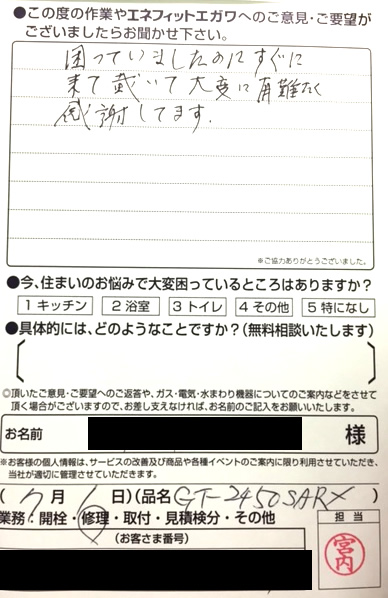 ●この度の作業やエネフィットエガワへのご意見・ご要望が
ございましたらお聞かせ下さい。
困っていましたのにすぐに
来て戴いて大変に有難たく
感謝してます.
※ご協力ありがとうございました。
●今、住まいのお悩みで大変困っているところはありますか?
1 キッチン 2 浴室 3 トイレ 4 その他 5 特になし
●具体的には、どのようなことですか?(無料相談いたします)
◎頂いたご意見・ご要望へのご返答や、ガス・電気・水まわり機器についてのご案内などをさせて
頂く場合がございますので、お差し支えなければ、お名前のご記入をお願いいたします。
お名前 様
※お客様の個人情報は、サービスの改善及び商品や各種イベントのご案内に限り利用させていただき、
当社が適切に管理させていただきます。
(7月6日)(品名 GT-2450SARX)
業務・開栓・修理・取付・見積検分・その他
担当
(お客さま番号)
宮内